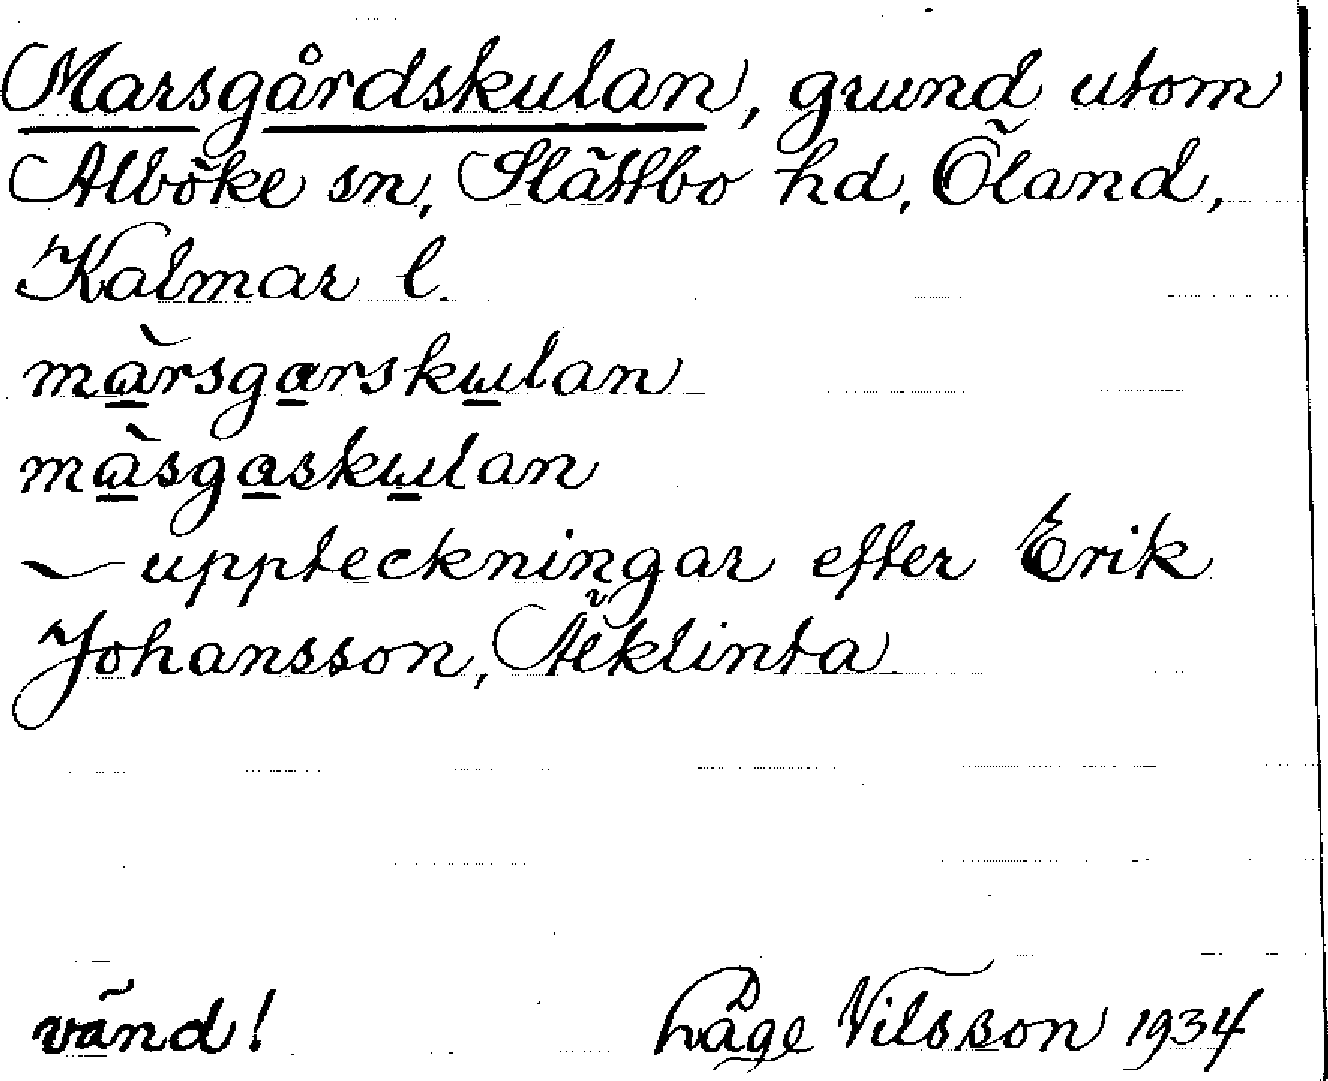 Marsgårdskulan, grund utom
Alböke sn, Slättbo hd, Öland,
Kalmar l.
màrsgarskulan
màsgaskulan
— uppteckningar efter Erik
Johansson, Äleklinta.
vänd! Håge Nilsson 1934